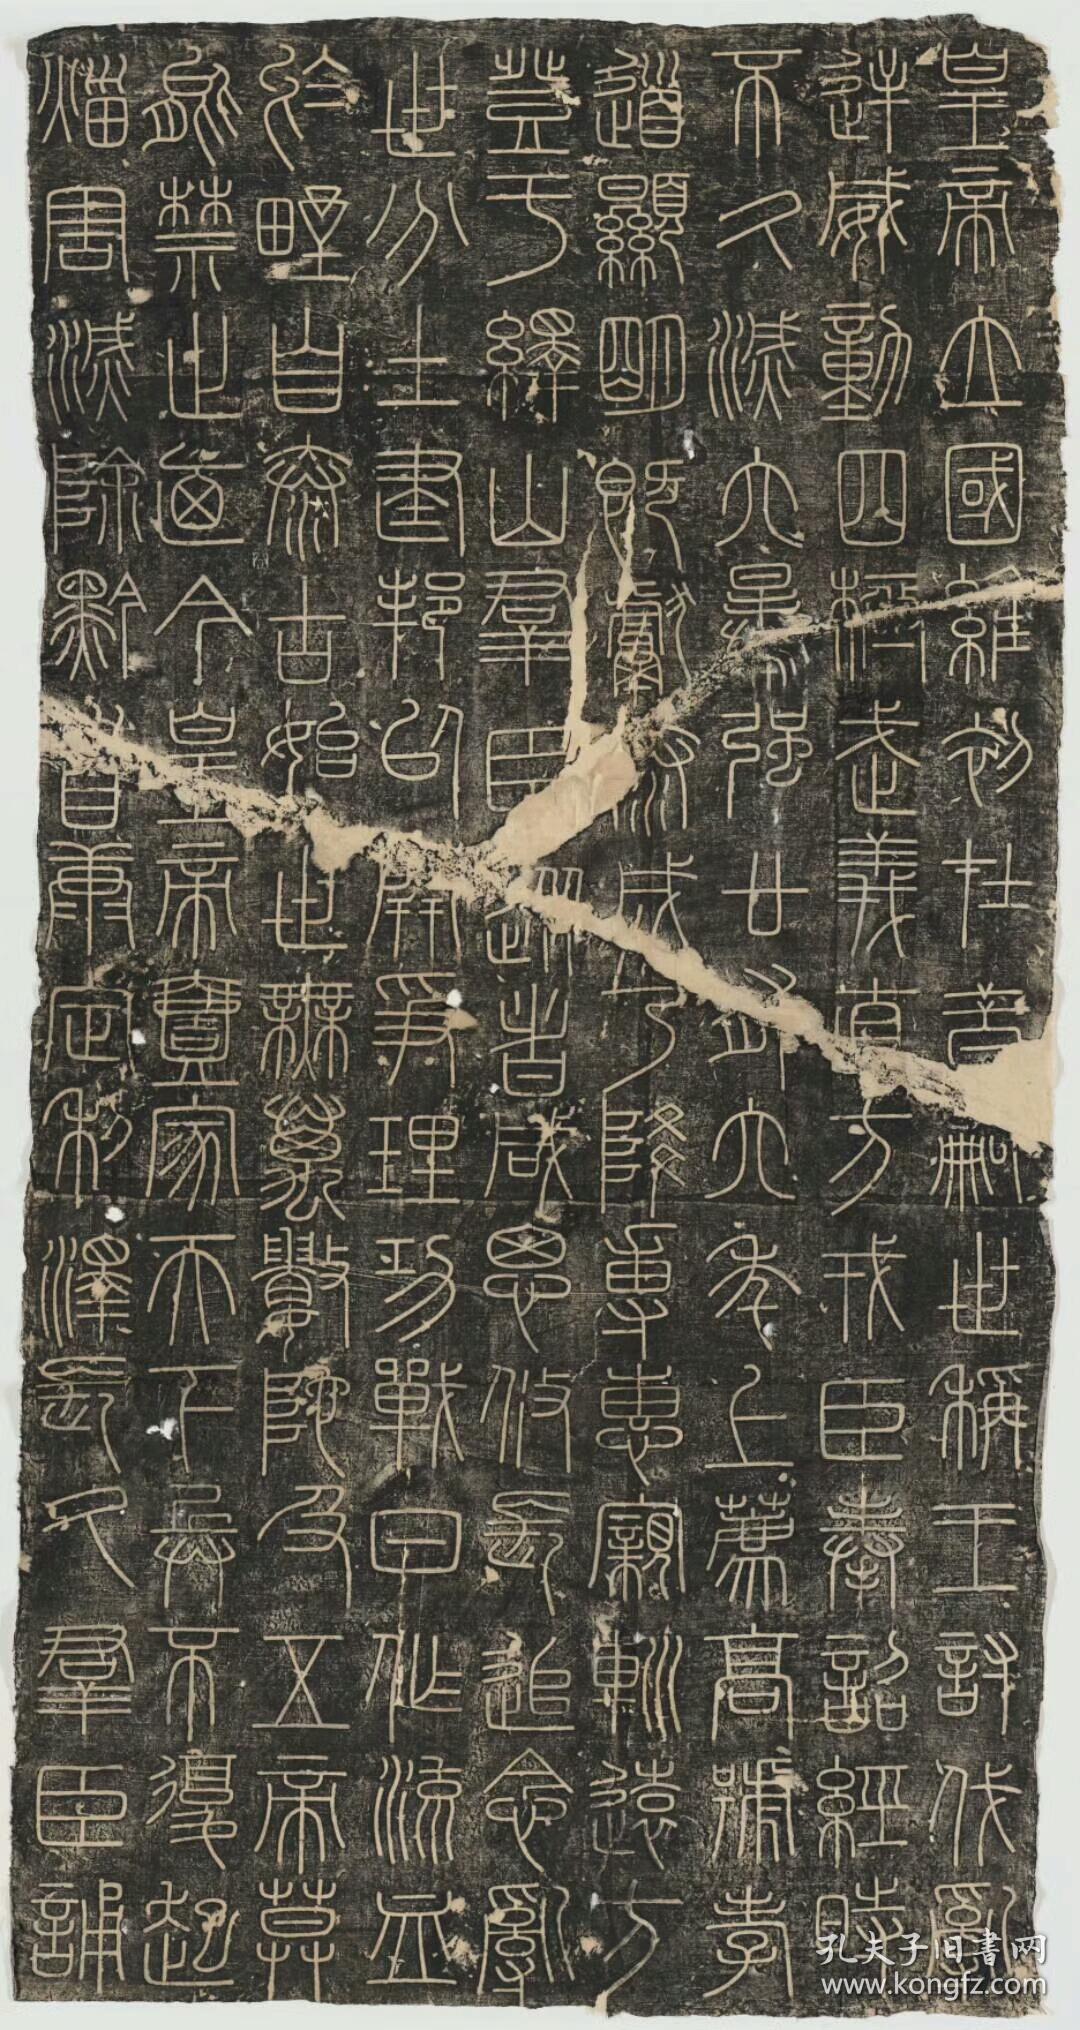 皇帝立國維初在昔嗣世稱王討伐亂
逆威動四極武義直方戎臣奉詔經時
不久滅六暴強廿有六年上薦高號孝
道顯明既獻泰成乃降專惠親巡遠方
登于繹山群臣從者咸思攸長追念亂
世分土建邦以開爭理功戰日作流血
於野自泰古始世無萬數陀及五帝莫
能禁止迺今皇帝壹家天下兵不復起
災害滅除黔首康定利澤長久群臣誦
孔夫子旧書网
www.kongfz.com